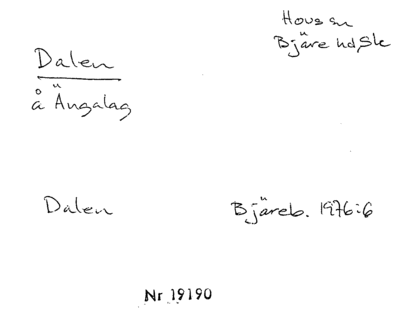 Hovs sn
Bjäre hd, Sk
Dalen
å Ängalag
Dalen Bjäreb. 1976:6
Nr 19190